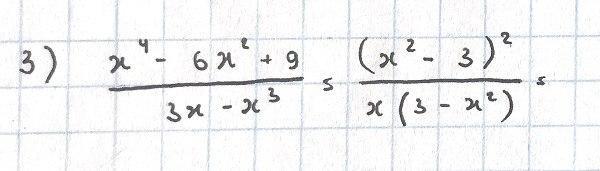 3) (x⁴ - 6x² + 9)/(3x - x³) = (x² - 3)²/(x(3 - x²)) =